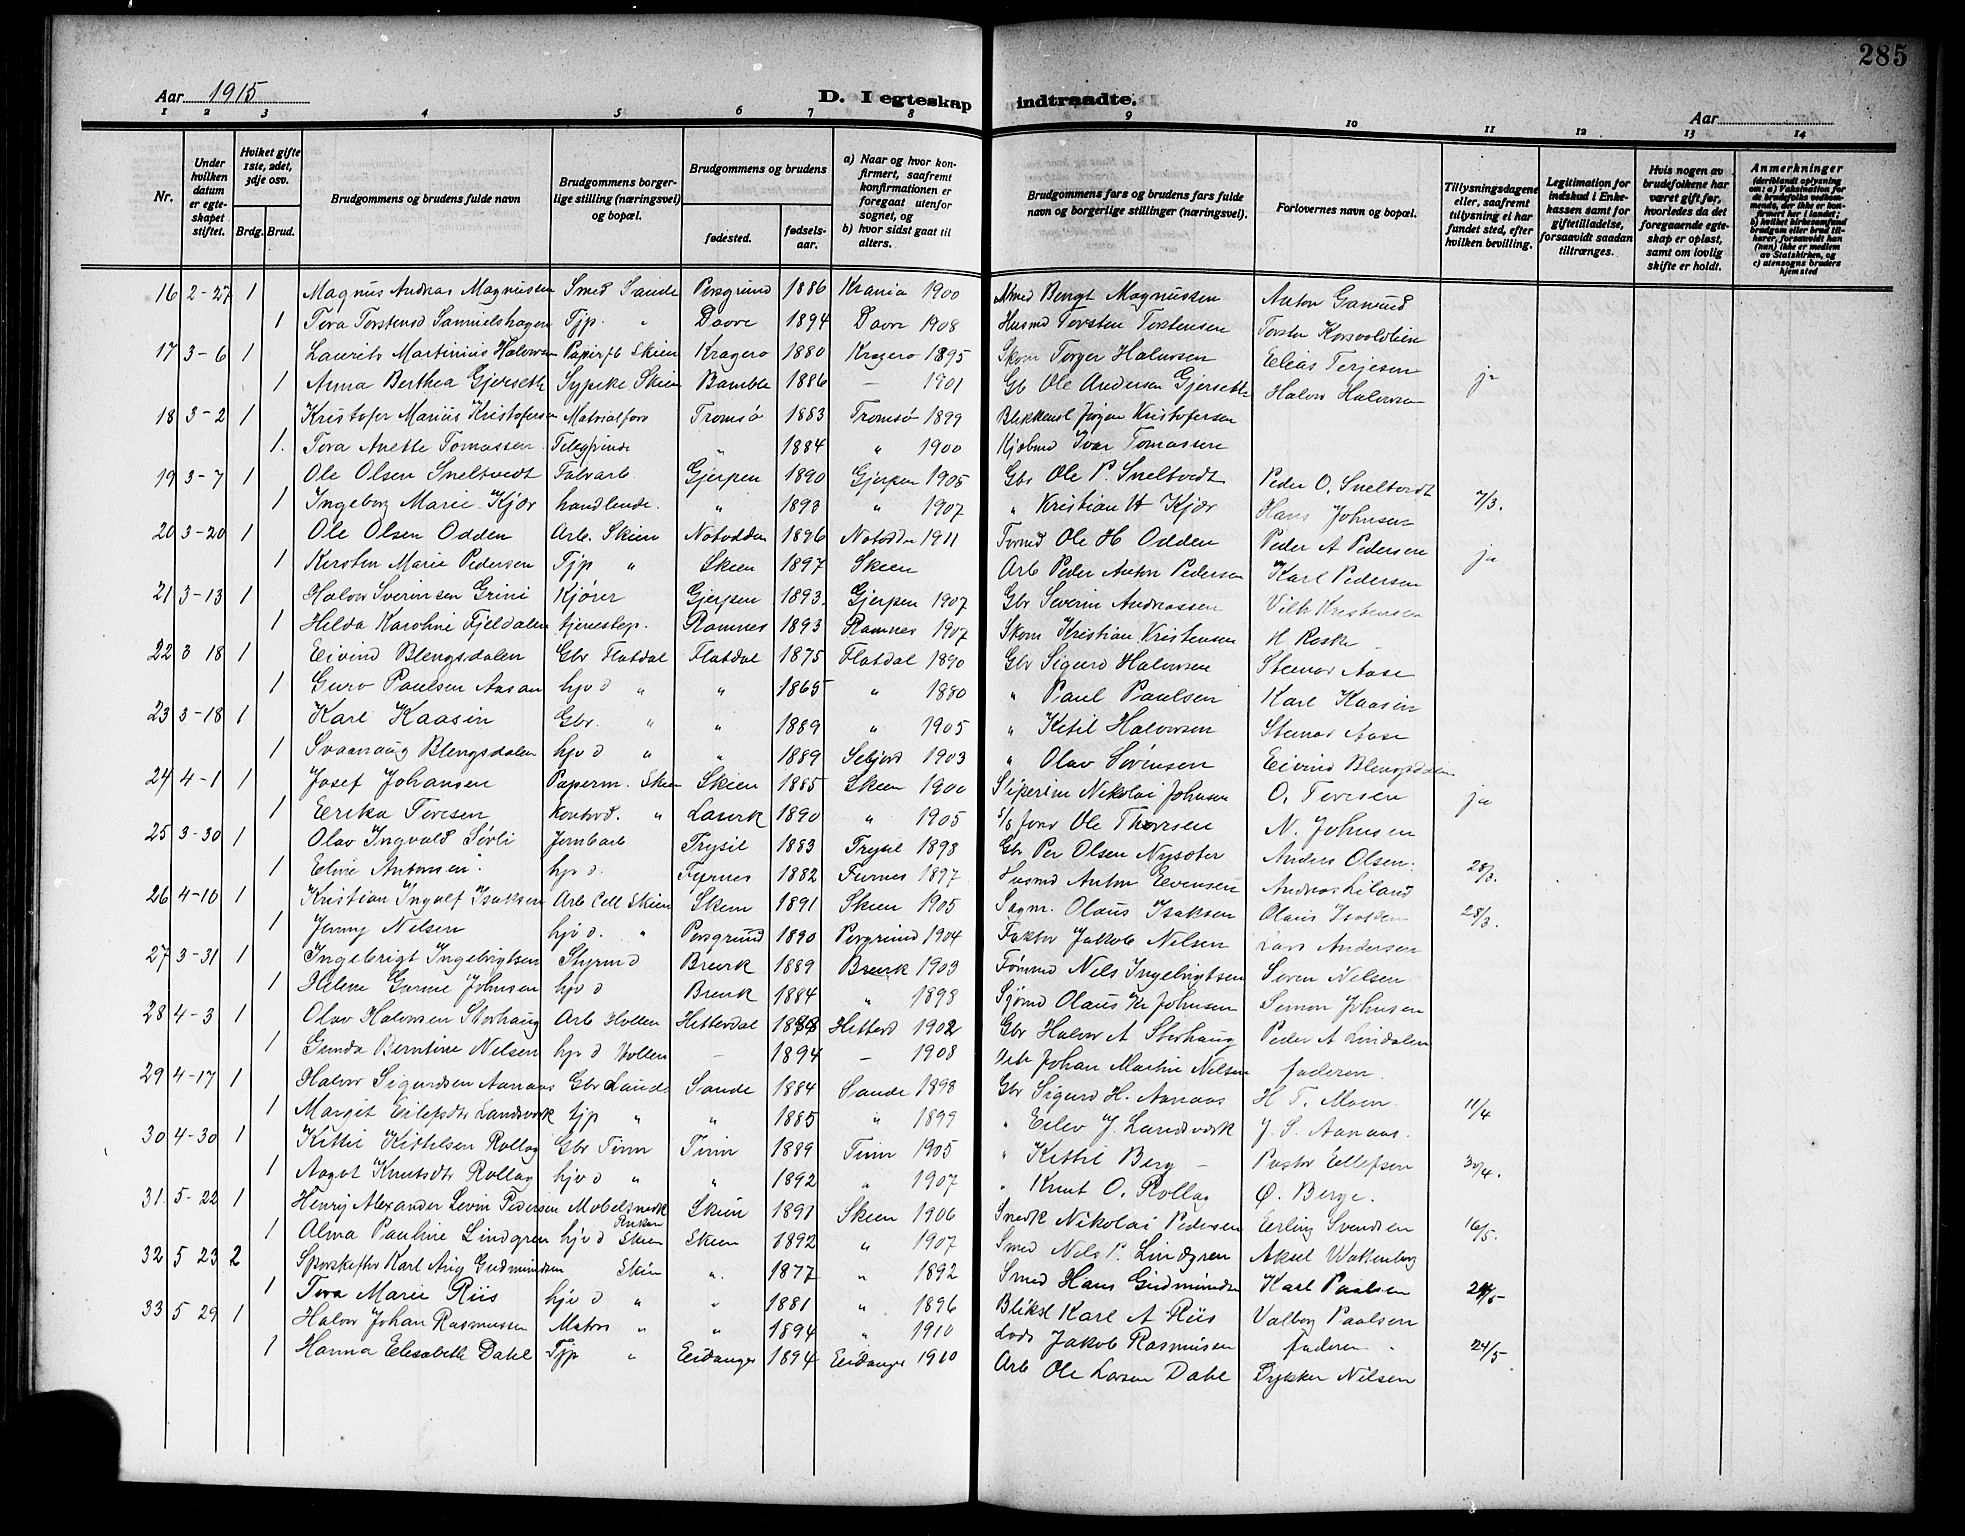 285
Aar 1915
D. I egteskap indtraadte.
Aar
1 2 3 4 5 6 7 8 9 10 11 12 13 14
Nr.
Under hvilken datum er egteskapet stiftet.
Hvilket gifte 1ste, 2det, 3dje osv.
Brdg. Brud.
Brudgommens og brudens fulde navn
Brudgommens borgerlige stilling (næringsvei) og bopæl.
Brudgommens og brudens
fødested.
fødselsaar.
a) Naar og hvor konfirmert, saafremt konfirmationen er foregaat utenfor sognet, og
b) hvor sidst gaat til alters.
Brudgommens fars og brudens fars fulde navn og borgerlige stillinger (næringsvei).
Forlovernes navn og bopæl.
Tillysningsdagene eller, saafremt tillysning ei har fundet sted, efter hvilken bevilling.
Legitimation for indskud i Enkekassen samt for giftetilladelse, forsaavidt saadan tiltrænges.
Hvis nogen av brudefolkene har været gift før, hvorledes da det foregaaende egteskap er opløst, samt om lovlig skifte er holdt.
Anmerkninger (deriblandt oplysning om: a) Vaksination for de brudefolks vedkommende, der ikke er konfirmert her i landet; b) hvilket kirkesamfund brudgom eller brud tilhører, forsaavidt han (hun) ikke er medlem av Statskirken, og c) utensogns bruders hjemsted
16 2-27 1 Magnus Andreas Magnussen Smed Sande Porsgrund 1886 Krania 1900 Smed Bengt Magnussen Anton
1 Tora Torstensd Samuelshagen Tjp. " Dovre 1894 Dovre 1908 Husmd Torsten Torstensen Torsten
17 3-6 1 Laurits Martinius Halvorsen Papirfb Skien Kragerø 1880 Kragerø 1895 Skom Torger Halvorsen Elias Terjesen ja
1 Anna Berthea Gjerseth Sypike Skien Bamble 1886 — 1901 Gb Ole Andersen Gjerseth Halvor Halvorsen
18 3-2 1 Kristofer Marius Kristofersen Materialforv Tromsø 1883 Tromsø 1899 Blikkensl Jørgen Kristofersen
1. Tora Anette Tomassen " 1884 " 1900 Kjøbmd Ivar Tomassen
19 3-7 1 Ole Olsen Sneltvedt Fabrarb. Gjerpen 1890 Gjerpen 1905 Gbr Ole P. Sneltvedt Peder O. Sneltvedt 7/3.
1 Ingeborg Marie Kjær handlende. " 1893 " 1907 " Kristian H Kjær Hans Johnsen
20 3-20 1 Ole Olsen Odden Arb. Skien Notodden 1896 Notodden 1911 Ole H Odden Peder A Pedersen ja
1 Kirsten Marie Pedersen Tjp " Skien 1897 Skien Arb Peder Anton Pedersen Karl Pedersen
21 3-13 1 Halvor Severinsen Grini Kjører Gjerpen 1893. Gjerpen 1907 Gbr Severin Andreassen Vilh Kristensen
1 Hilda Karoline Fjeldalen tjenestep. Ramnes 1893 Ramnes 1907 Skom Kristian Kristensen H
22 3 18 1 Eivind Blengsdalen Gbr Flatdal Flatdal 1875 Flatdal 1890 Gbr Sigurd Halvorsen Steinar Aase
1 Guro Paulsen Aasan hjv d " " 1865 " 1880 " Paul Paulsen Karl Kaasin
23 3-18 1 Karl Kaasin Gbr. " " 1889 " 1905 " Ketil Halvorsen Steinar Aase
1 Svanaug Blengsdalen hjv d " " 1889 Seljord 1903 " Olav Sørensen Eivind Blengsdalen
24 4-1 1 Josef Johansen Paperm. Skien Skien 1885 Skien 1900 Nikolai Johnsen O. Toresen ja
1 Erika Toresen Kontord. " Larvik 1890 " 1905 Ole Thoresen N. Johnsen
25 3-30 1 Olav Ingvald Sørli Jernbarb Trysil 1883 Trysil 1898 Gbr Per Olsen Nysæter Anders Olsen. 28/3.
1 Eline Antonsen. hjv d. Furnes 1882 Furnes 1897 Husmd Anton Evensen Andreas Liland
26 4-10 1 Kristian Ingolf Isaksen Arb Cell Skien Skien 1891 Skien 1905 Sagm. Olaus Isaksen Olaus Isaksen 28/3.
1 Jenny Nelsen hjv d. " Porsgrund 1890 Porgrund 1904 Faktor Jakob Nelsen Lars Andersen
27 3-31 1 Ingebrigt Ingebrigtsen Styrmd Brevik 1889 Brevik 1903 Tømmd Nils Ingebrigtsen Søren Nilsen
1 Helene Gurine Johnsen hjv d Brevik 1884 " 1898 Sjømd Olaus Kr Johnsen Simon Johnsen
28 4-3 1 Olav Halvorsen Storhaug Arb Hollen Hitterdal 1888 Hitterd 1902 Gbr Halvor A Storhaug Peder A Lindalen
1 Gunda Berntine Nelsen hjv d Hollen — 1894 — 1908 Johan Martin Nelsen faderen.
29 4-17 1 Halvor Sigurdsen Aanaas Gbr Laude Sande 1884 Sande 1898 Gbr Sigurd H. Aanaas H T. Moen 11/4
1 Margit Eilefsdtr Landsverk tjp " " 1885 " 1899 " Eilev J Landsverk J. S. Aanaas.
30 4-30 1 Kittil Kittilsen Rollag Gbr Tinn Tinn 1889 Tinn 1905 " Kittil Berg — Pastor Ellefsen 30/4.
1 Aagot Knutsdtr Rollag hjv d " " 1892 " 1907 " Knut O. Rollag Ø. Berge.
31 5-22 1 Henry Alexander Levin Pedersen Møbelsnedk Skien 1891 Skien 1906 Snedk Nikolai Pedersen Erling Svendsen 16/5.
1 Alma Pauline Lindgren hjv d Skien Skien 1892 " 1907 Smed Nels P. Lindgren Aksel Wattenberg
32 5 23 2 Sporskifter Karl Aug Gudmundsen Skien " 1877 " 1892 Smed Hans Gudmundsen Karl Paalsen 24/5
1 Tora Marie Riis hjv d " " 1881 " 1896 Bliksl Karl A Riis Valborg Paalsen
33 5 29 1 Halvor Johan Rasmussen Matros " " 1894 " 1910 Lods Jakob Rasmussen faderen. 24/5
1 Hanna Elisabeth Dahl Tjp " Eidanger 1894 Eidanger 1910 Arb Ole Larsen Dahl Dykker Nilsen